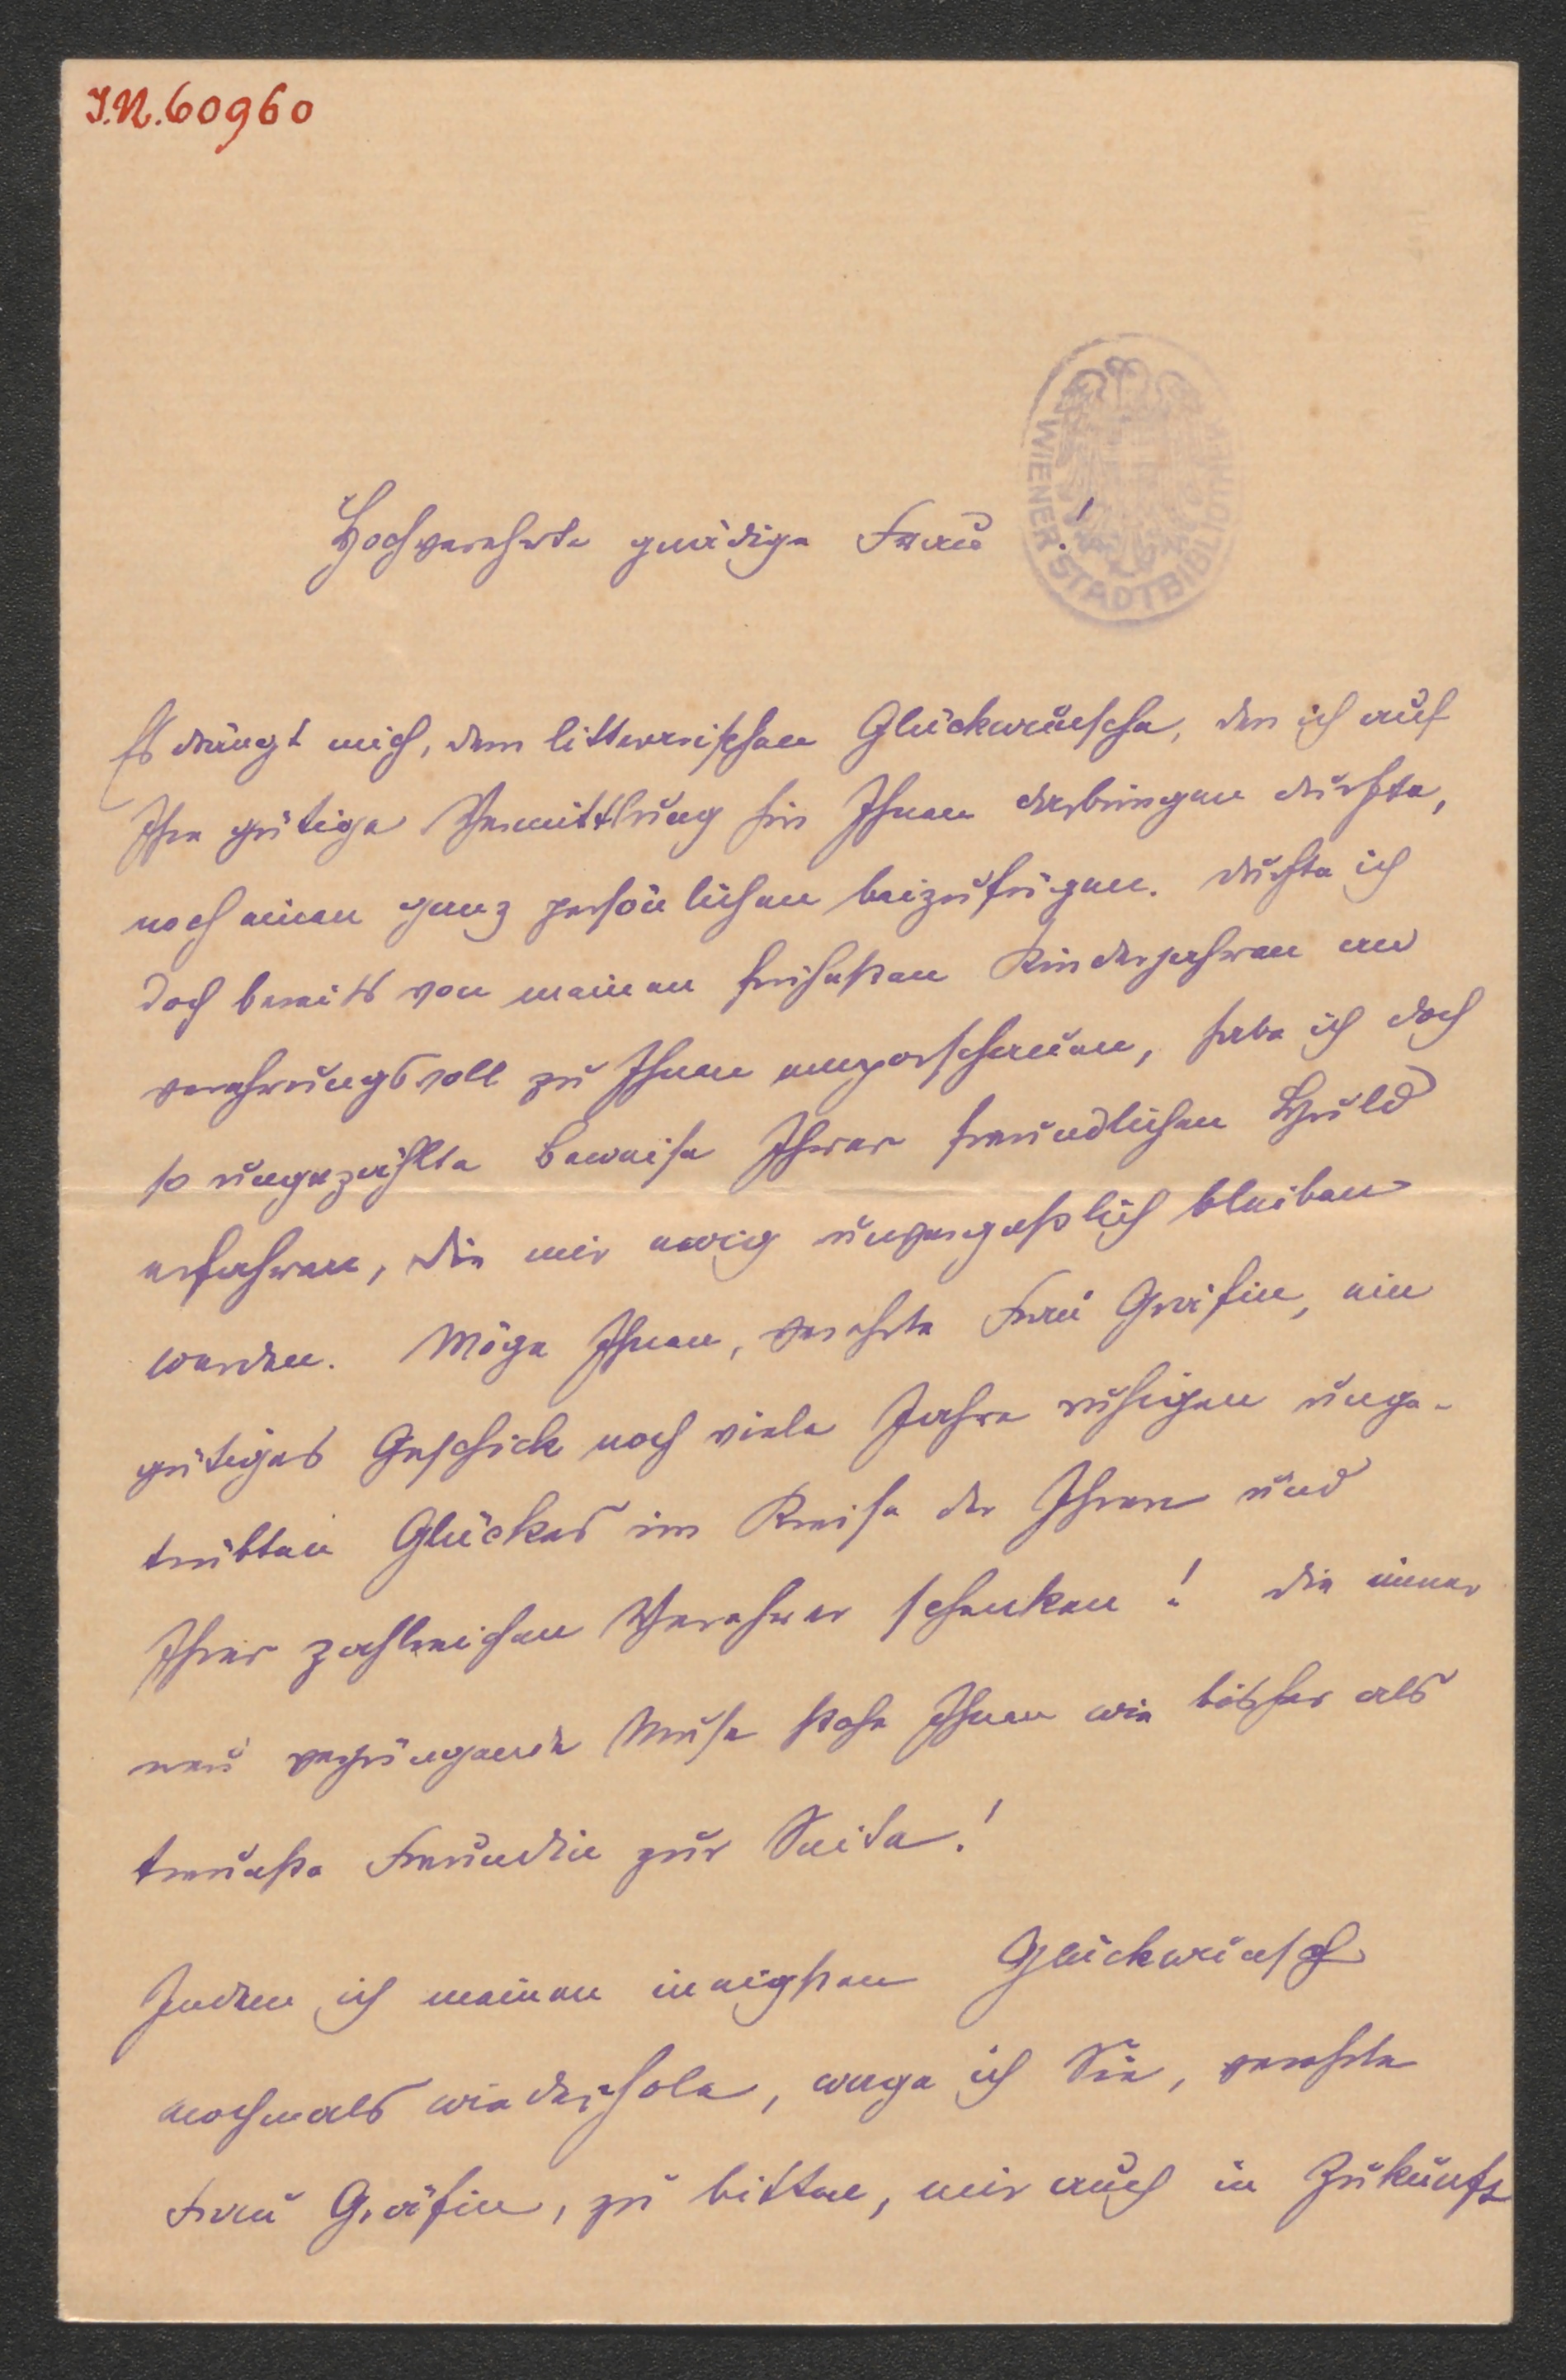 J.N. 60960
WIENER STADTBIBLIOTHEK
Hochverehrte gnädige Frau!
Es drängt mich, dem litterarischen Glückwunsche, den ich auf
Ihre gütige Vermittlung hin Ihnen darbringen durfte,
noch einen ganz persönlichen beizufügen. Durfte ich
doch bereits von meinen frühesten Kinderjahren an
verehrungsvoll zu Ihnen emporschauen, habe ich doch
so ungezählte Beweise Ihrer freundlichen Huld
erfahren, die mir ewig unvergeßlich bleiben
werden. Möge Ihnen, verehrte Frau Gräfin, ein
gütiges Geschick noch viele Jahre ruhigen unge-
trübten Glückes im Kreise der Ihren und
Ihrer zahlreichen Verehrer schenken! Die immer
neu verjüngende Muse stehe Ihnen wie bisher als
treueste Freundin zur Seite!
Indem ich meinen innigsten Glückwunsch
nochmals wiederhole, wage ich Sie, verehrte
Frau Gräfin, zu bitten, mir auch in Zukunft